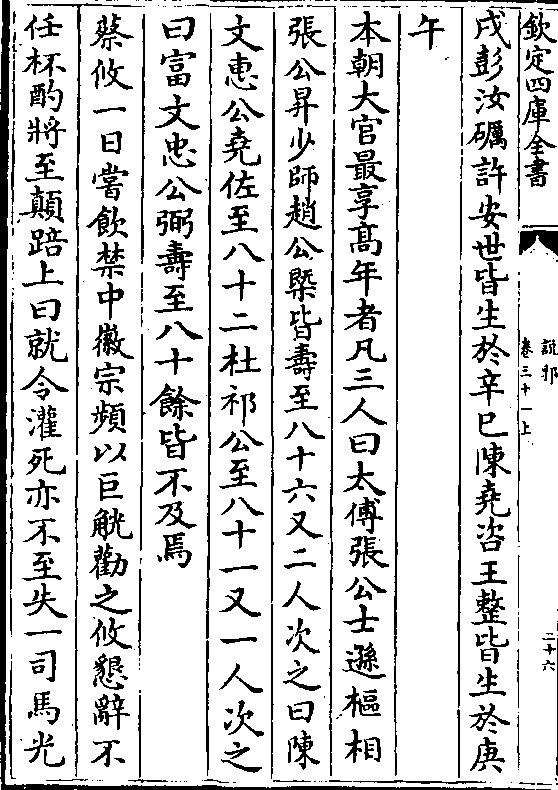 欽定四庫全書
說郛
卷三十一上
二十六
戌彭汝礪許安世皆生於辛巳陳堯咨王整皆生於庚
午
本朝大官最享髙年者凡三人曰太傅張公士遜樞相
張公昇少師趙公槩皆壽至八十六又二人次之曰陳
文恵公堯佐至八十二杜祁公至八十一又一人次之
曰富文忠公弼壽至八十餘皆不及焉
蔡攸一日嘗飲禁中徽宗頻以巨觥勸之攸懇辭不
任杯酌將至顛踣上曰就令灌死亦不至失一司馬光